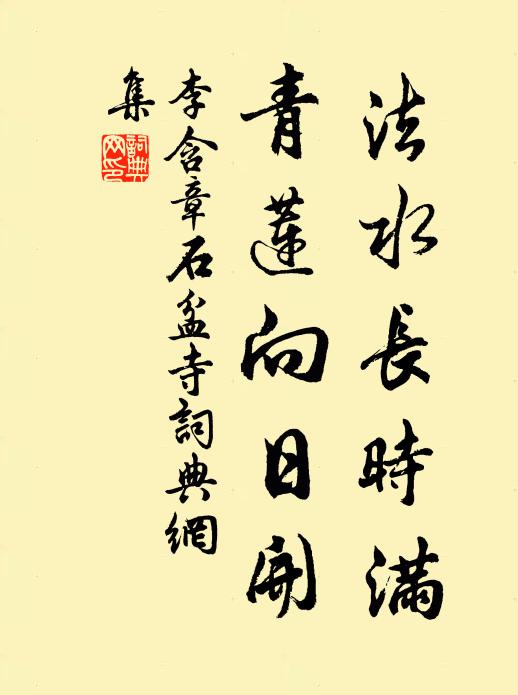 法水長時滿
青蓮向日開
李含章石盆寺詞典網
集
詞典網印